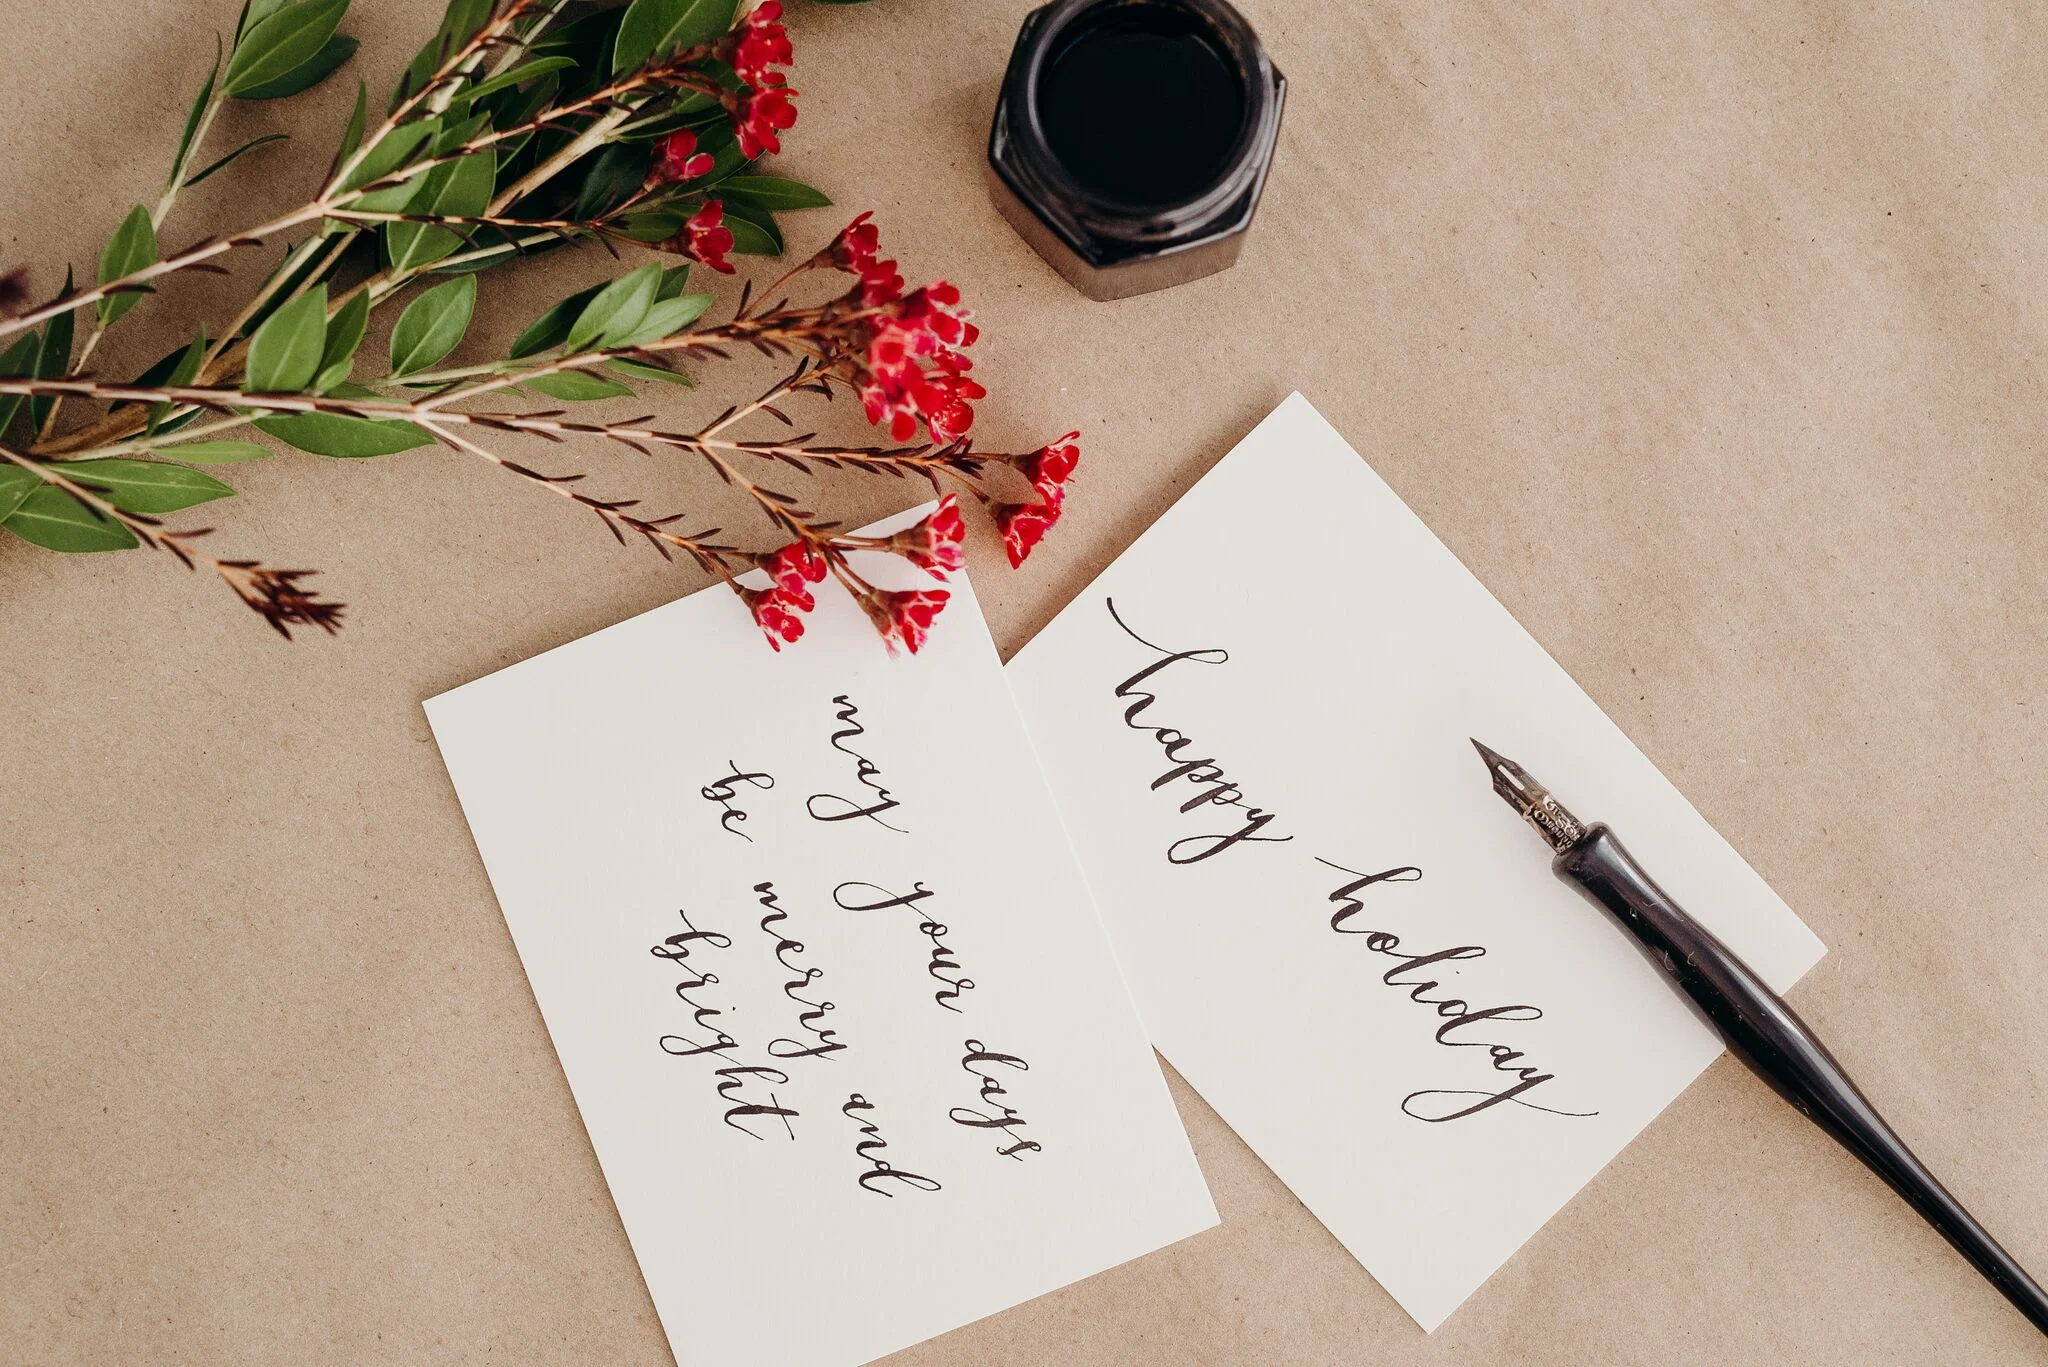 may your days
be merry and
bright
happy holiday